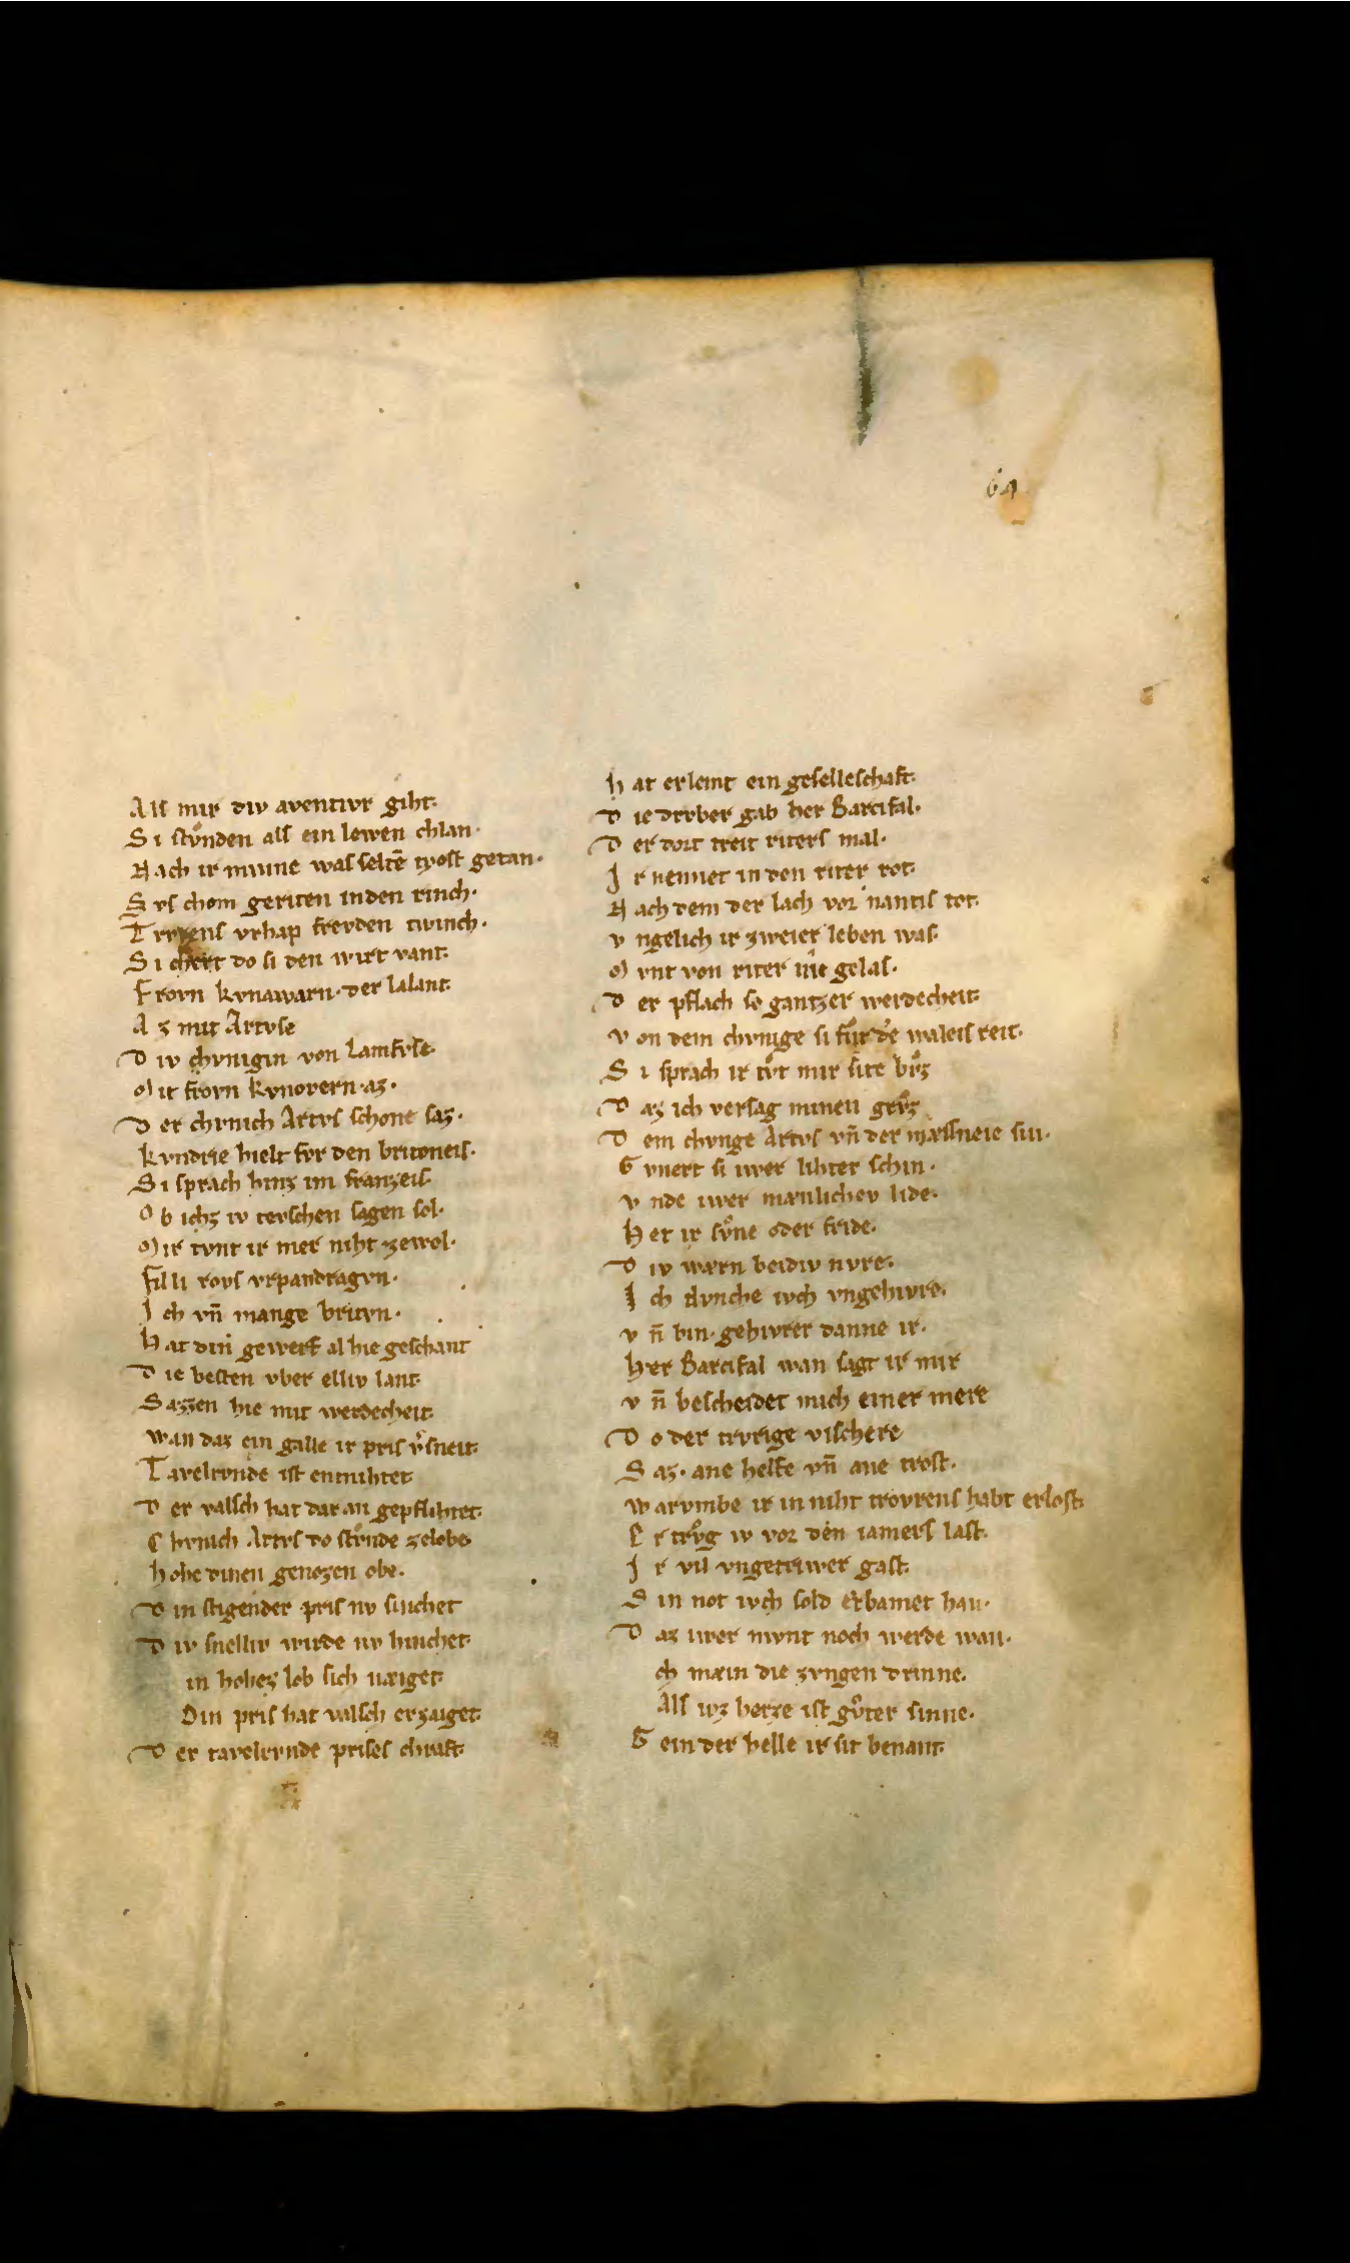 64
Alſ mir div aventivr giht.
Si ſtuͦnden alſ ein lewen chlan.
Nach ir minne waſ ſeltē tyoſt getan.
Svſ chom geriten inden rinch.
Trvrenſ vrhap frevden twinch.
Si chert do ſi den wirt vant.
Frovn kvnawarn. der lalant
Az mit Artvſe
Div chvnigin von Iamfvſe.
Mit frovn kynovern. az.
Der chvnich Artvſ ſchone ſaz.
kvndrie hielt fvr den britoneiſ.
Si ſprach hinz im franzeiſ.
Ob ichz iv tevſchen ſagen ſol.
Mir tvnt ir mer niht zewol.
Fil li royſ vrpandragvn.
Ich vn̄ mange britun.
Hat din gewerf al hie geſchant
Die beſten vber elliv lant.
Sazzen hie mit werdecheit.
wan daz ein galle ir priſ v͛ſneit.
Tavelrvnde iſt entnihtet
Der valſch hat dar an gepflihtet.
Chvnich Artvſ do ſtuͦnde zelobe.
hohe dinen genozen obe.
Din ſtigender priſ nv ſinchet
Div ſnelliv wirde nv hinchet.
in hohez lob ſich næiget.
Din priſ hat valſch erzaiget.
Der tavelrvnde priſeſ chraft.
hat erlemt ein geſelleſchaft.
Die drvber gab her Parcifal.
Der dort treit riterſ mal.
Ir nennet in den riter rot.
Nach dem der lach vor nantiſ tot.
vngelich ir zweier leben waſ.
Mvnt von riter nie gelaſ.
Der pflach ſo gantzer werdecheit.
von dem chvnige ſi fuͤr de waleiſ reit.
Si ſprach ir tuͦt mir ſite buͦz
Daz ich verſag minen gruͦz
Dem chvnge Artvſ vn̄ der mæſſneie ſin.
Gvnert ſi iwer lihter ſchin.
vnde iwer mænlichev lide.
Het ir ſuͦne oder fride.
Div wærn beidiv nvre.
Ich dvnche ivch vngehivre.
vn̄ bin. gehivrer danne ir.
her Parcifal wan ſagt ir mir
vn̄ beſcheidet mich einer mere
Do der trvrige viſchere
Saz. ane helfe vn̄ ane troſt.
warvmbe ir in niht trovrenſ habt erloſt.
Er truͦg iv vor den iamerſ laſt.
Ir vil vngetriwer gaſt.
Sin not ivch ſold erbamet han.
Daz iwer mvnt noch werde wan.
ch mæin die zvngen drinne.
Alſ ivz herze iſt guͦter ſinne.
Gein der helle ir ſit benant.